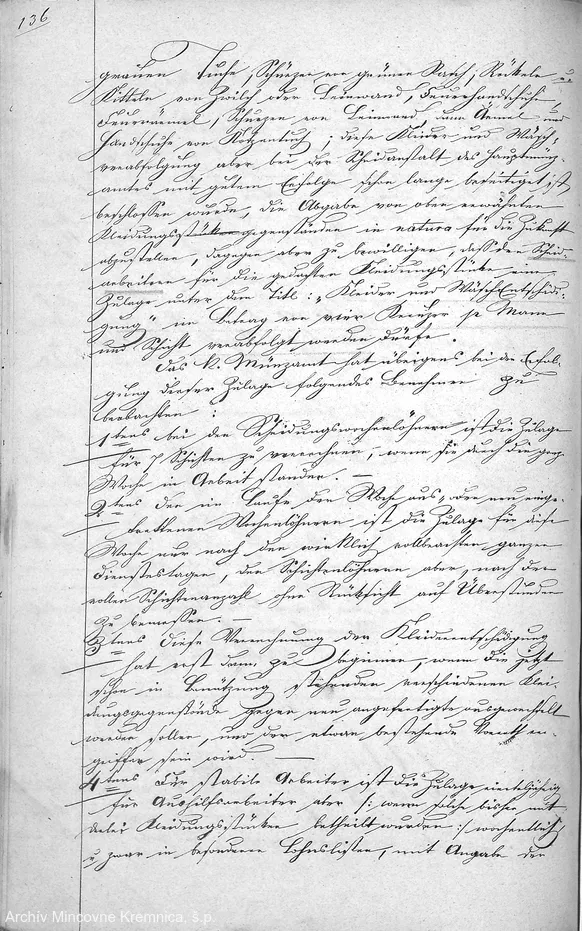 136
grauen Tuche, Schürzen von grünen Rasch, Röckeln u:
Kitteln von Zwilch oder Leinwand, Feuerhandschuhe
Feuerärmel, Schürzen von Leinwand, dann Ärmel und
Handschuhe von Kotzentuch; diese Kleider und Wäsch-
verabfolgung aber bei der Scheidanstalt des Hauptmünz-
amtes mit gutem Erfolge schon lange beseitiget ist
beschlossen wurde, die Abgabe von oben erwähnten
Kleidungsgegenständen in natura für die Zukunft
abzustellen, dagegen aber zu bewilligen, daß den Scheid-
arbeitern für die gedachten Kleidungsstücke eine
Zulage unter dem Titl: „Kleider und Wäsch Entschädi-
gung" im Betrag von vier Kreuzer pr Mann
und Schicht verabfolgt werden dürfe.
Das k. Münzamt hat übrigens bei der Erfol-
gung dieser Zulage folgendes Benehmen zu
beobachten:
1tens bei den Scheidungswochenlöhnern ist die Zulage
für 7 Schichten zu verrechnen, wenn sie durch die ganze
Woche in Arbeit standen. —
2tens den im Laufe der Woche aus- oder neu einge-
tretenen Wochenlöhnern ist die Zulage für diese
Woche nur nach den wirklich vollbrachten ganzen
Dienstestagen, den Schichtenlöhnern aber, nach der
vollen Schichtenanzahl ohne Rücksicht auf Überstunden
zu bemessen. —
3tens diese Verrechnung der Kleiderentschädigung
hat erst dann zu beginnen, wenn die jetzt
schon in Benützung stehenden verschiedenen Klei-
dungsgegenstände gegen neu angefertigte ausgewechselt
werden sollen, und der etwa bestehende Vorrath er-
griffen sein wird. —
4tens Für stabile Arbeiter ist die Zulage vierteljährig
für Aushilfsarbeiter aber /: wenn solche bisher mit
derlei Kleidungsstücken betheilt wurden :/ wochentlich
u zwar in besonderen Lohnslisten, mit Angabe der
Archív Mincovne Kremnica, š.p.